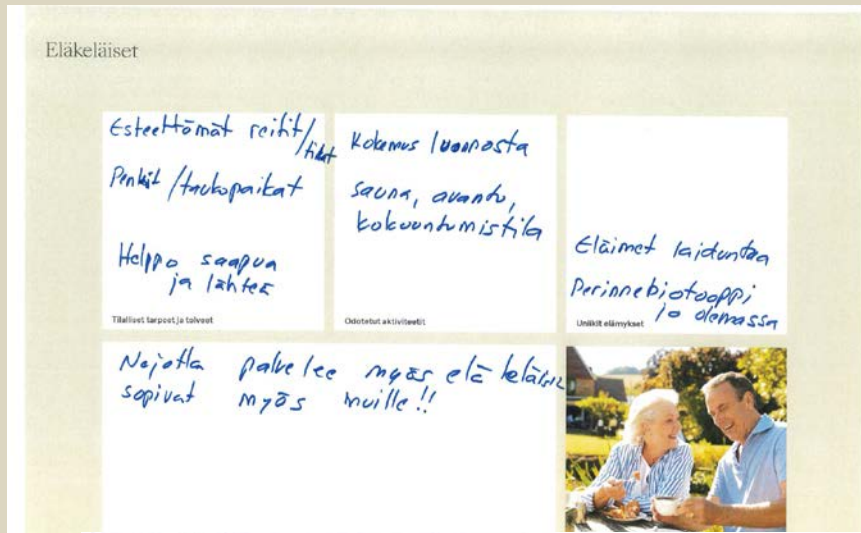 Eläkeläiset
Esteettömät reitit/
tilat
Penkit/taukopaikat
Helppo saapua
ja lähteä
Tilalliset tarpeet ja toiveet
Kokemus luonnosta
sauna, avanto,
kokoontumistila
Odotetut aktiviteetit
Eläimet laiduntaa
Perinnebiotooppi
jo olemassa
Uniikit elämykset
palvelee myös
sopivat myös muille!!